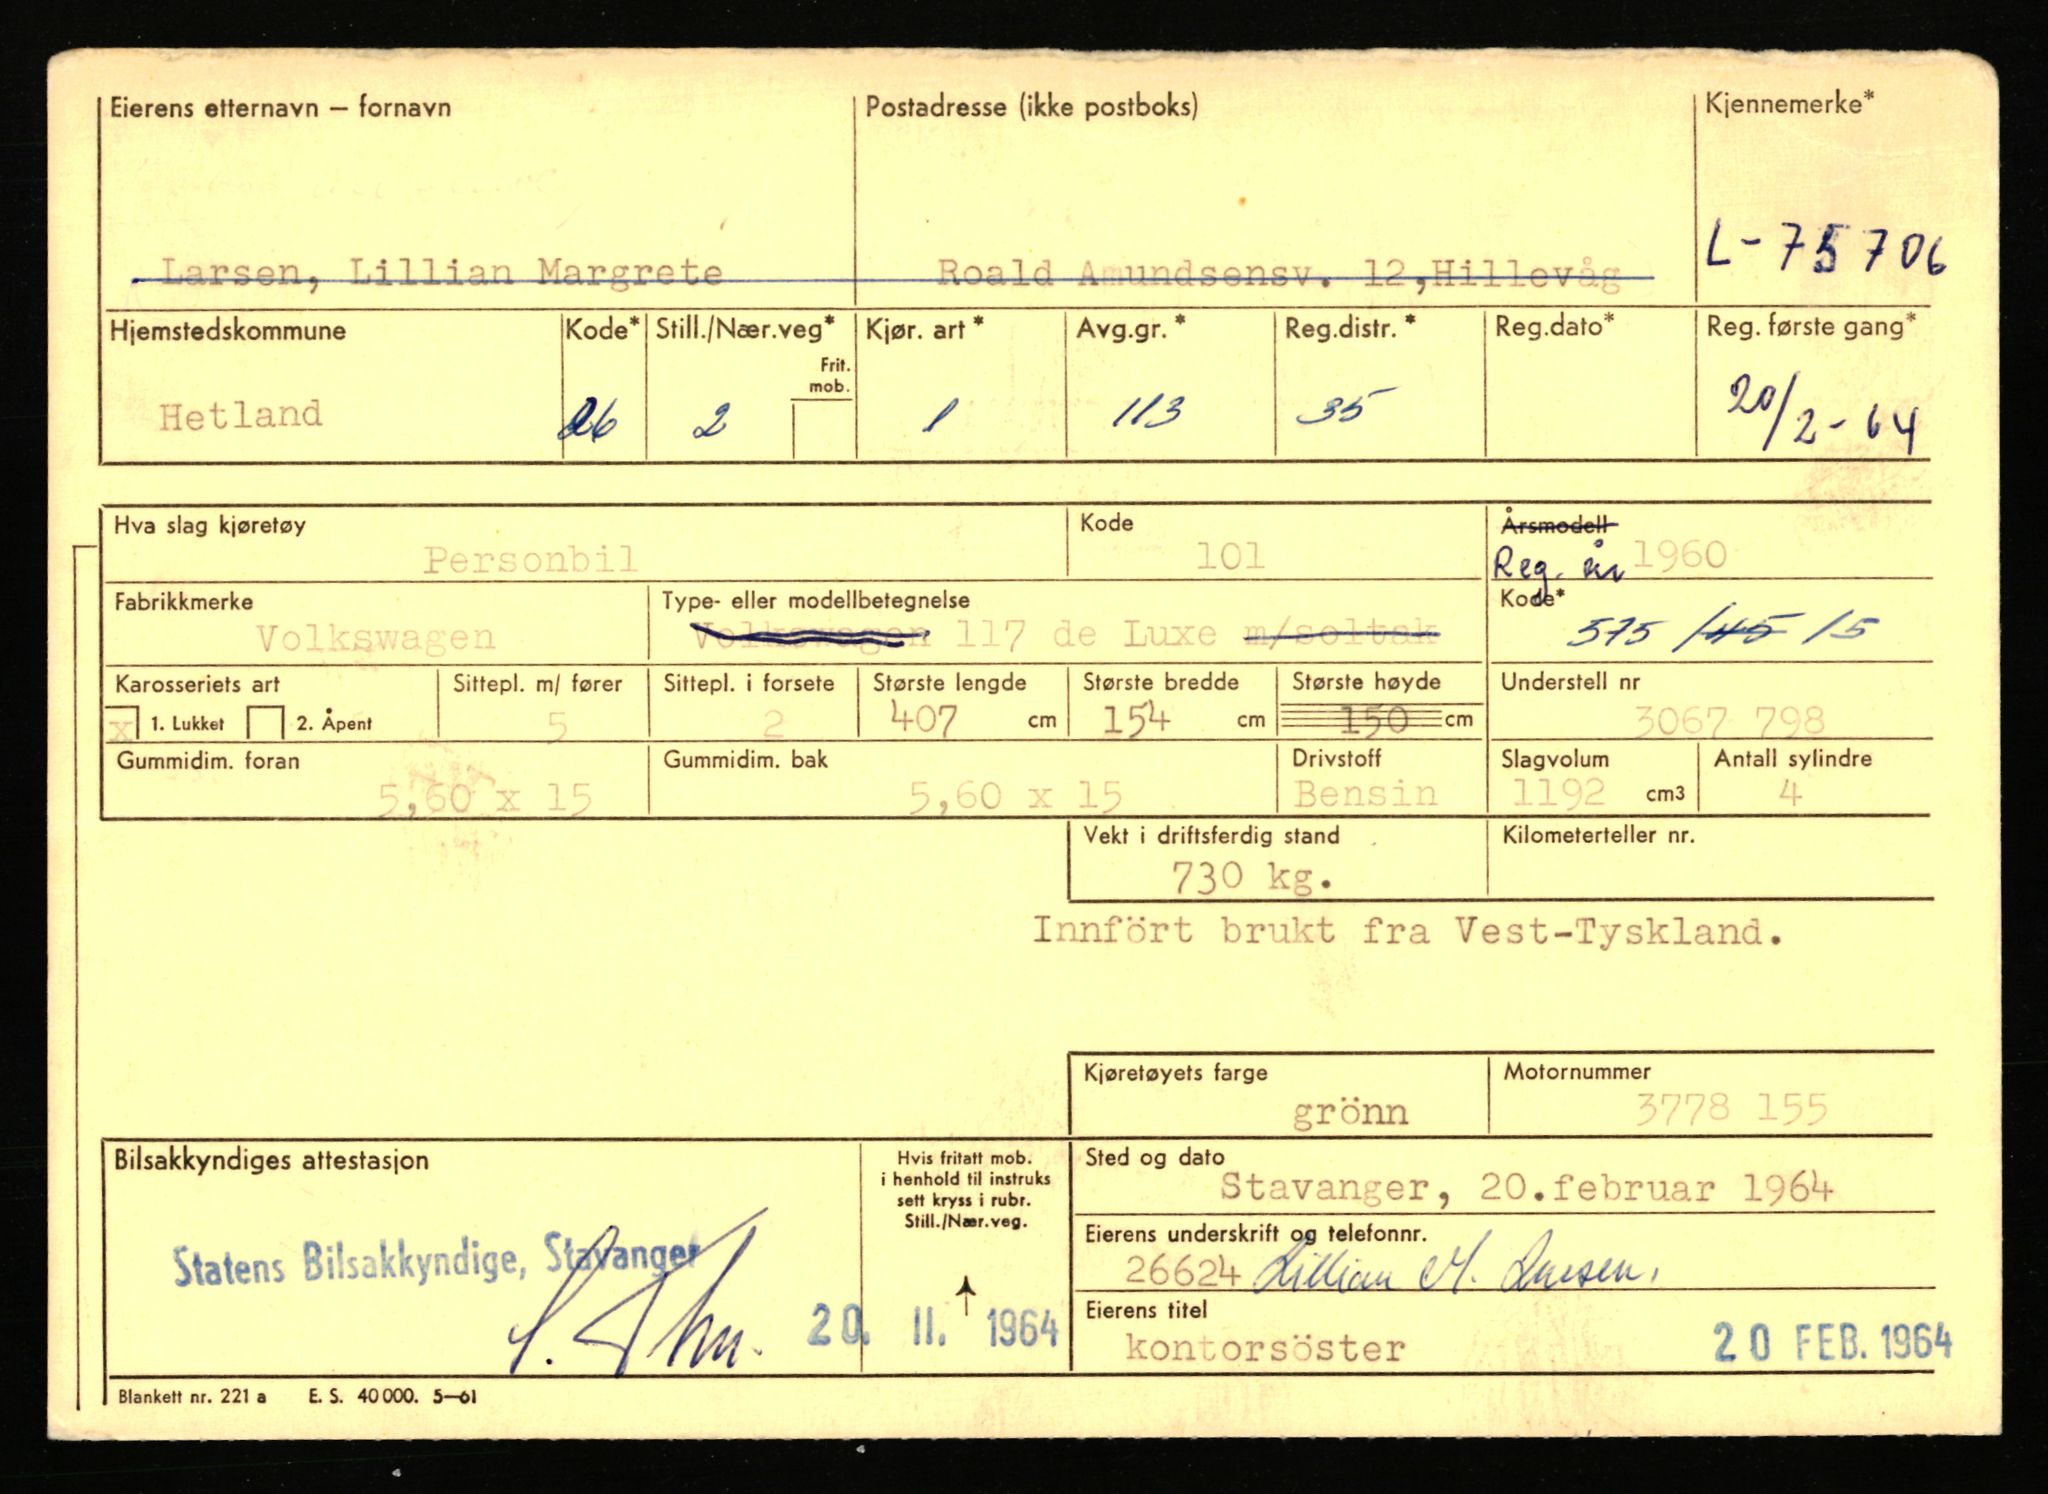 Eierens etternavn – fornavn Postadresse (ikke postboks) Kjennemerke*
Larsen, Lillian Margrete Roald Amundsensv. 12, Hillevåg L-75706
Hjemstedskommune Kode* Still./Nær.veg* Kjør. art* Avg.gr.* Reg.distr.* Reg.dato* Reg. første gang*
Frit. mob.
Hetland 26 2 1 113 35 20/2-64
Hva slag kjøretøy Kode Årsmodell
Personbil 101 Reg. år 1960
Fabrikkmerke Type- eller modellbetegnelse Kode*
Volkswagen Volkswagen 117 de Luxe m/soltak 575 /45 15
Karosseriets art Sittepl. m/ fører Sittepl. i forsete Største lengde Største bredde Største høyde Understell nr
x 1. Lukket 2. Åpent 5 2 407 cm 154 cm 150 cm 3067 798
Gummidim. foran Gummidim. bak Drivstoff Slagvolum Antall sylindre
5,60 x 15 5,60 x 15 Bensin 1192 cm3 4
Vekt i driftsferdig stand Kilometerteller nr.
730 kg.
Innfört brukt fra Vest-Tyskland.
Kjøretøyets farge Motornummer
grönn 3778 155
Bilsakkyndiges attestasjon Hvis fritatt mob. i henhold til instruks sett kryss i rubr. Still./Nær.veg. Sted og dato
Stavanger, 20.februar 1964
Eierens underskrift og telefonnr.
Statens Bilsakkyndige, Stavanger 26624 Lillian M. Larsen.
Eierens titel
20. II. 1964 kontorsöster 20 FEB. 1964
Blankett nr. 221 a E. S. 40 000. 5–61